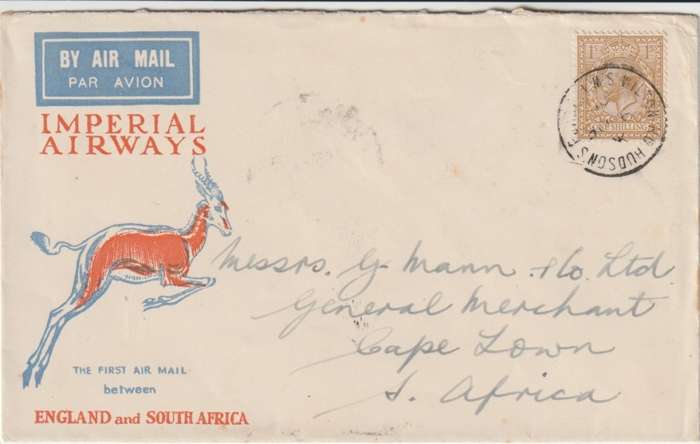 BY AIR MAIL
PAR AVION
IMPERIAL
AIRWAYS
1S 1S
ONE SHILLING
HUDSON'S
Messrs. G. Mann & Co. Ltd.
General Merchant
Cape Town
S. Africa
THE FIRST AIR MAIL
between
ENGLAND and SOUTH AFRICA